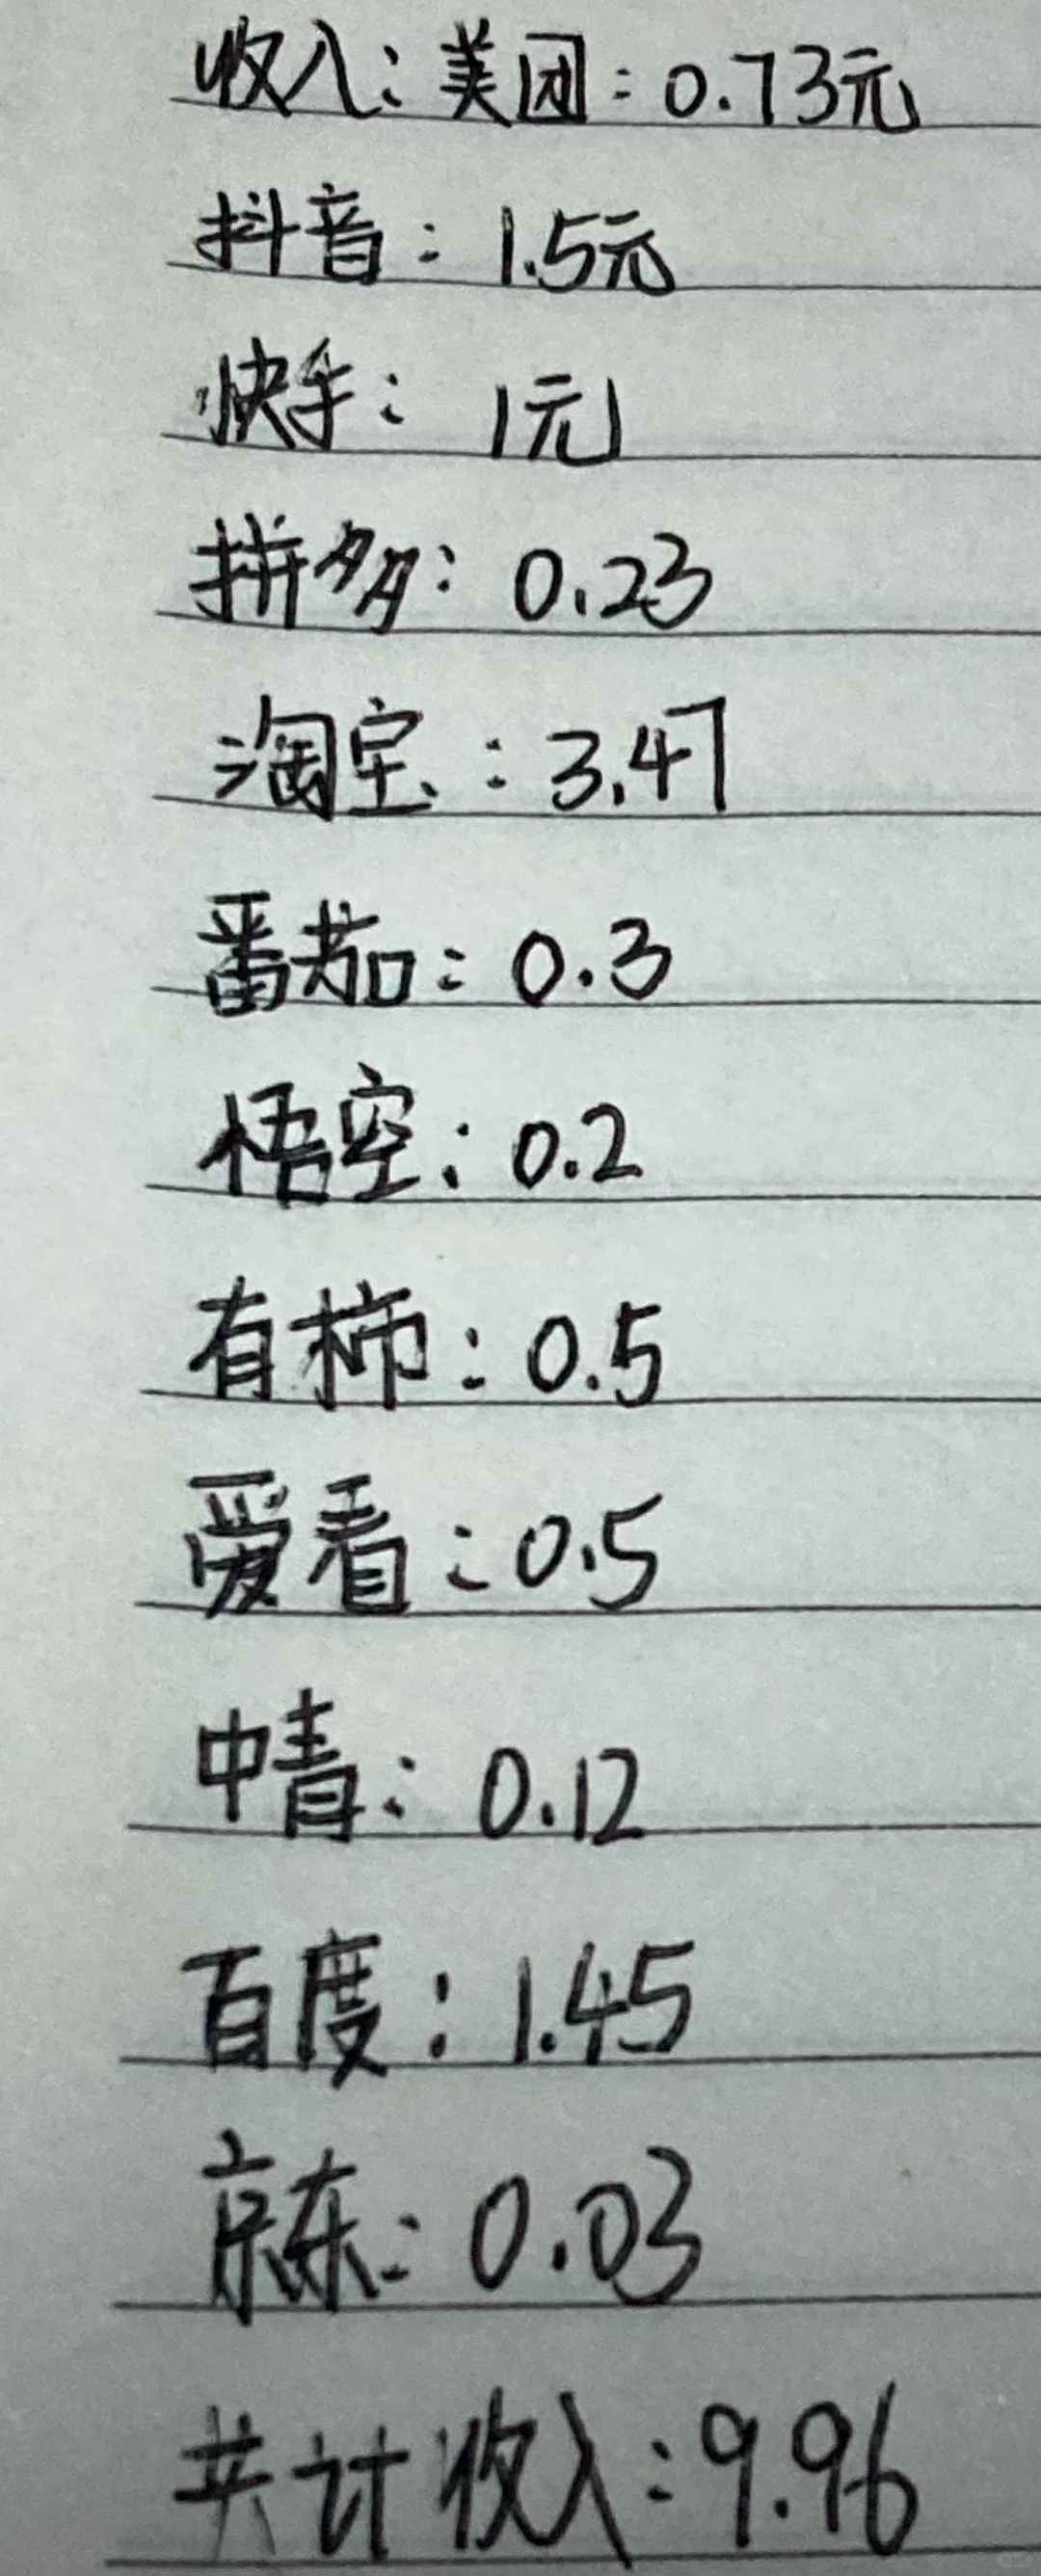 收入：美团：0.73元
抖音：1.5元
快手：1元
拼多：0.23
淘宝：3.47
番茄：0.3
悟空：0.2
有柿：0.5
爱看：0.5
中青：0.12
百度：1.45
京东：0.03
共计收入：9.96